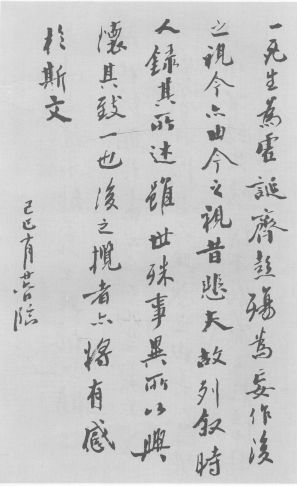 一死生為虛誕齊彭殤為妄作後
之視今亦由今之視昔悲夫故列叙時
人錄其所述雖世殊事異所以興
懷其致一也後之攬者亦將有感
於斯文
己巳十月廿